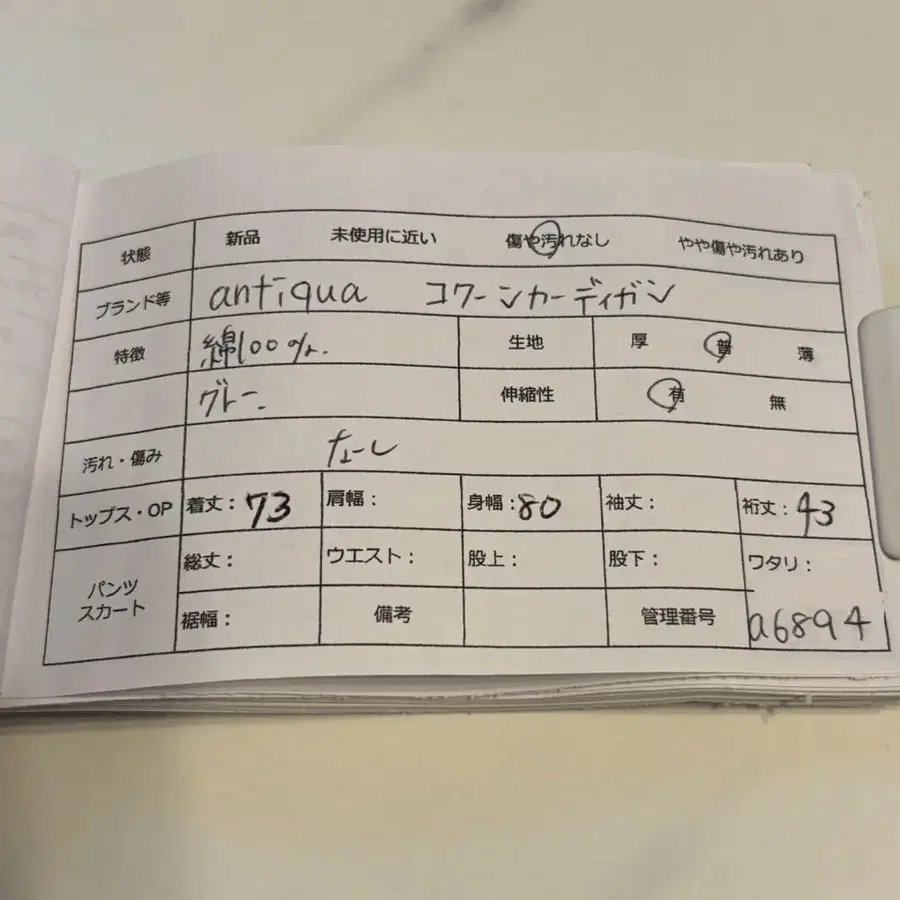 状態 新品 未使用に近い 傷や汚れなし やや傷や汚れあり
ブランド等 antiqua コクーンカーディガン
特徴 綿100%. 生地 厚 普 薄
グレー. 伸縮性 有 無
汚れ・傷み なし
トップス・OP 着丈：73 肩幅： 身幅：80 袖丈： 裄丈：43
パンツ スカート 総丈： ウエスト： 股上： 股下： ワタリ：
裾幅： 備考 管理番号 a6894